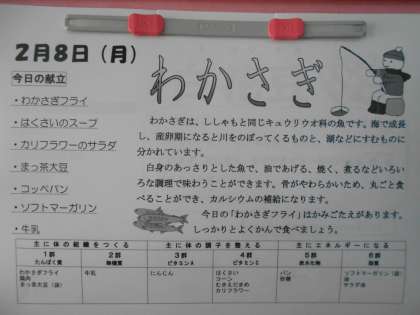 2月8日（月）
わかさぎ
今日の献立
・わかさぎフライ
・はくさいのスープ
・カリフラワーのサラダ
・まっ茶大豆
・コッペパン
・ソフトマーガリン
・牛乳
わかさぎは、ししゃもと同じキュウリウオ科の魚です。海で成長
し、産卵期になると川をのぼってくるものと、湖などにすむものに
分かれています。
白身のあっさりとした魚で、油であげる、焼く、煮るなどいろい
ろな調理で味わうことができます。骨がやわらかいため、丸ごと食
べることができ、カルシウムの補給になります。
今日の「わかさぎフライ」はかみごたえがあります。
しっかりとよくかんで食べましょう。
主に体の組織をつくる 主に体の調子を整える 主にエネルギーになる
1群 2群 3群 4群 5群 6群
たんぱく質 無機質 ビタミンA ビタミンC 炭水化物 脂質
わかさぎフライ 牛乳 にんじん はくさい パン ソフトマーガリン
鶏肉 コーン 砂糖 油
まっ茶大豆 むきえだまめ サラダ油
カリフラワー